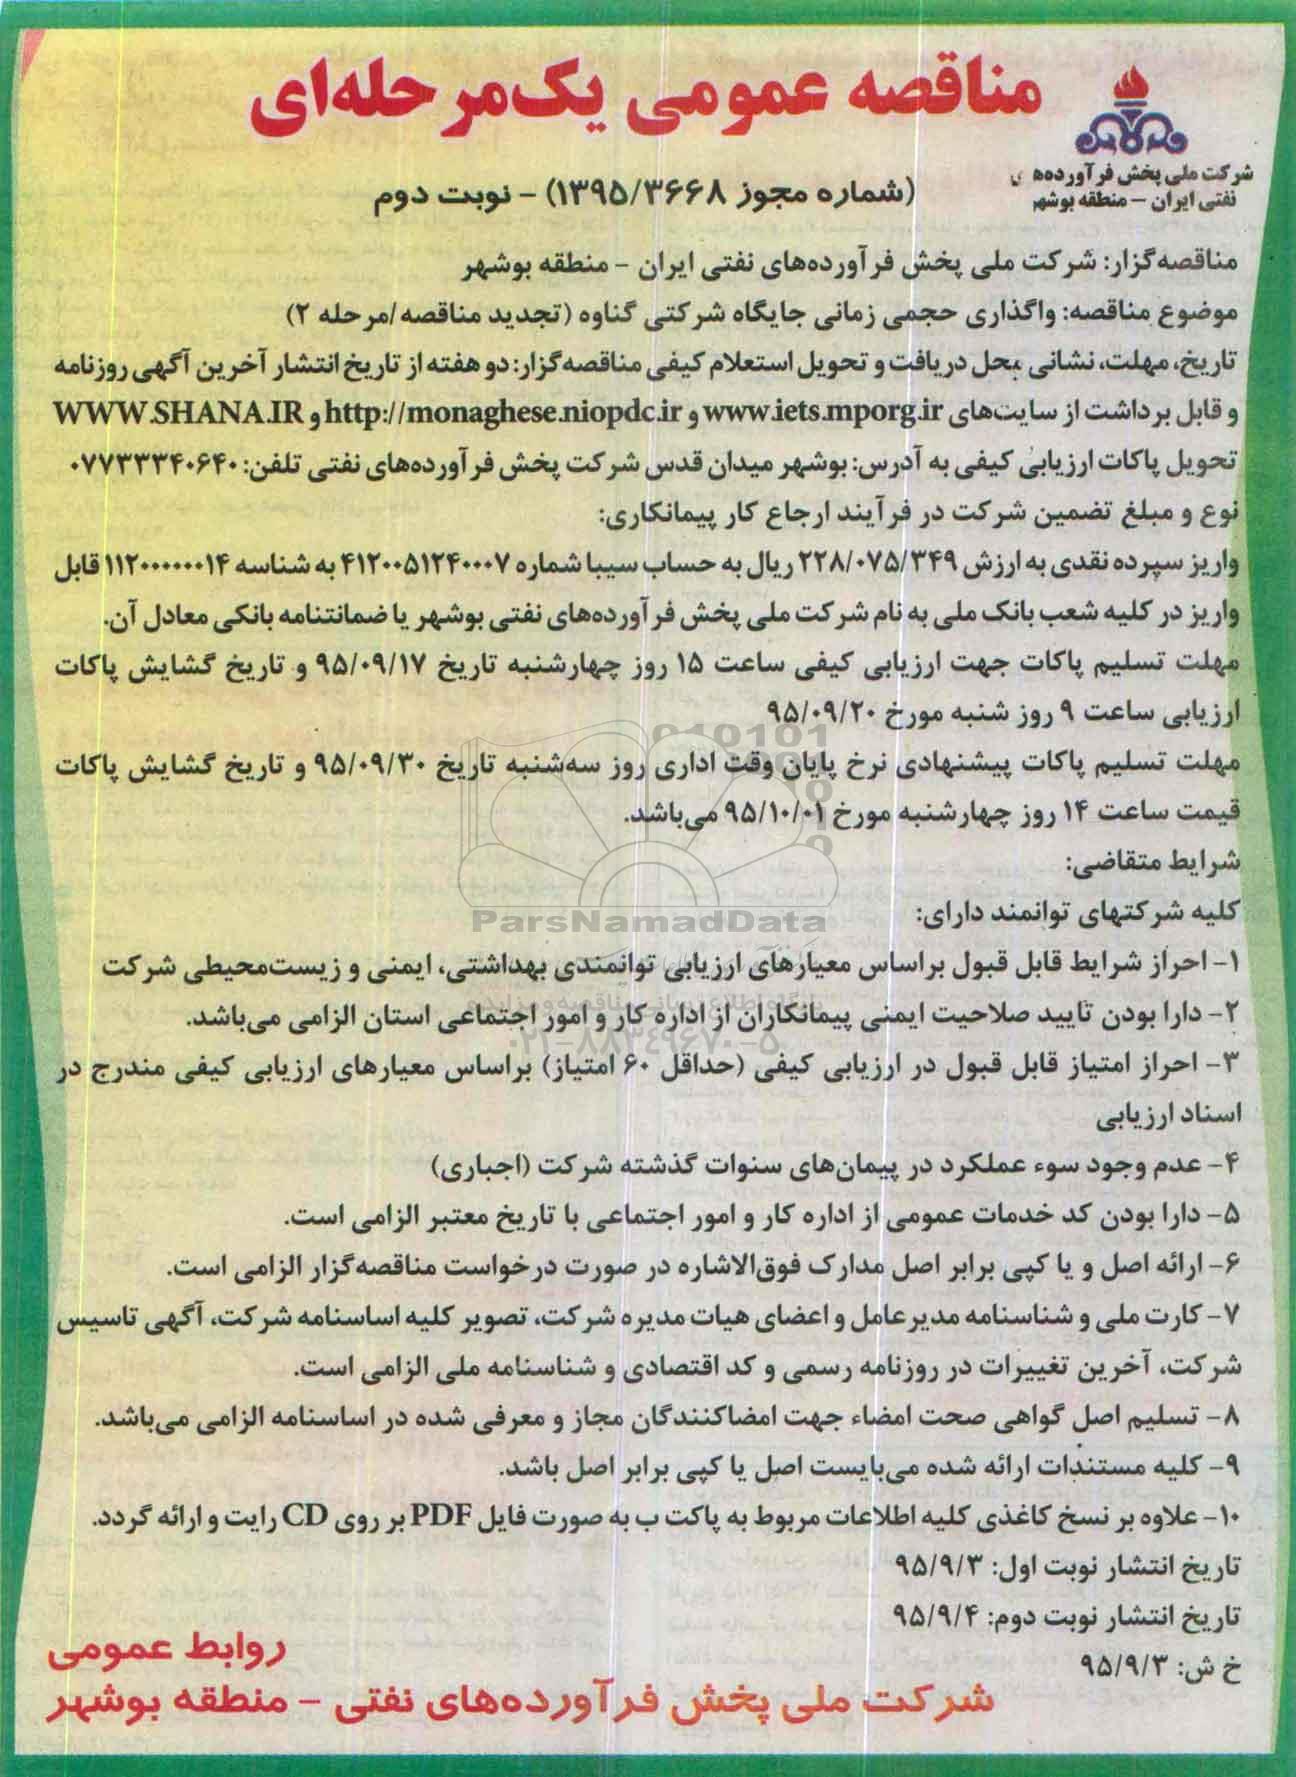 مناقصه عمومی یک‌مرحله‌ای
شرکت ملی پخش فرآورده‌های
نفتی ایران - منطقه بوشهر
(شماره مجوز ۱۳۹۵/۳۶۶۸) - نوبت دوم
مناقصه‌گزار: شرکت ملی پخش فرآورده‌های نفتی ایران - منطقه بوشهر
موضوع مناقصه: واگذاری حجمی زمانی جایگاه شرکتی گناوه (تجدید مناقصه/مرحله ۲)
تاریخ، مهلت، نشانی محل دریافت و تحویل استعلام کیفی مناقصه‌گزار: دو هفته از تاریخ انتشار آخرین آگهی روزنامه
و قابل برداشت از سایت‌های www.iets.mporg.ir و http://monaghese.niopdc.ir و WWW.SHANA.IR
تحویل پاکات ارزیابی کیفی به آدرس: بوشهر میدان قدس شرکت پخش فرآورده‌های نفتی تلفن: ۰۷۷۳۳۳۴۰۶۴۰
نوع و مبلغ تضمین شرکت در فرآیند ارجاع کار پیمانکاری:
واریز سپرده نقدی به ارزش ۲۲۸/۰۷۵/۳۴۹ ریال به حساب سیبا شماره ۴۱۲۰۰۵۱۲۴۰۰۰۷ به شناسه ۱۱۲۰۰۰۰۰۰۰۱۴ قابل
واریز در کلیه شعب بانک ملی به نام شرکت ملی پخش فرآورده‌های نفتی بوشهر یا ضمانتنامه بانکی معادل آن.
مهلت تسلیم پاکات جهت ارزیابی کیفی ساعت ۱۵ روز چهارشنبه تاریخ ۹۵/۰۹/۱۷ و تاریخ گشایش پاکات
ارزیابی ساعت ۹ روز شنبه مورخ ۹۵/۰۹/۲۰
مهلت تسلیم پاکات پیشنهادی نرخ پایان وقت اداری روز سه‌شنبه تاریخ ۹۵/۰۹/۳۰ و تاریخ گشایش پاکات
قیمت ساعت ۱۴ روز چهارشنبه مورخ ۹۵/۱۰/۰۱ می‌باشد.
شرایط متقاضی:
کلیه شرکتهای توانمند دارای:
ParsNamadData
۱- احراز شرایط قابل قبول براساس معیارهای ارزیابی توانمندی بهداشتی، ایمنی و زیست‌محیطی شرکت
۲- دارا بودن تایید صلاحیت ایمنی پیمانکاران از اداره کار و امور اجتماعی استان الزامی می‌باشد.
۰۲۱-۸۸۳۴۹۶۷۰-۵
۳- احراز امتیاز قابل قبول در ارزیابی کیفی (حداقل ۶۰ امتیاز) براساس معیارهای ارزیابی کیفی مندرج در
اسناد ارزیابی
۴- عدم وجود سوء عملکرد در پیمان‌های سنوات گذشته شرکت (اجباری)
۵- دارا بودن کد خدمات عمومی از اداره کار و امور اجتماعی با تاریخ معتبر الزامی است.
۶- ارائه اصل و یا کپی برابر اصل مدارک فوق‌الاشاره در صورت درخواست مناقصه‌گزار الزامی است.
۷- کارت ملی و شناسنامه مدیرعامل و اعضای هیات مدیره شرکت، تصویر کلیه اساسنامه شرکت، آگهی تاسیس
شرکت، آخرین تغییرات در روزنامه رسمی و کد اقتصادی و شناسنامه ملی الزامی است.
۸- تسلیم اصل گواهی صحت امضاء جهت امضاکنندگان مجاز و معرفی شده در اساسنامه الزامی می‌باشد.
۹- کلیه مستندات ارائه شده می‌بایست اصل یا کپی برابر اصل باشد.
۱۰- علاوه بر نسخ کاغذی کلیه اطلاعات مربوط به پاکت ب به صورت فایل PDF بر روی CD رایت و ارائه گردد.
تاریخ انتشار نوبت اول: ۹۵/۹/۳
تاریخ انتشار نوبت دوم: ۹۵/۹/۴
خ ش: ۹۵/۹/۳
روابط عمومی
شرکت ملی پخش فرآورده‌های نفتی - منطقه بوشهر